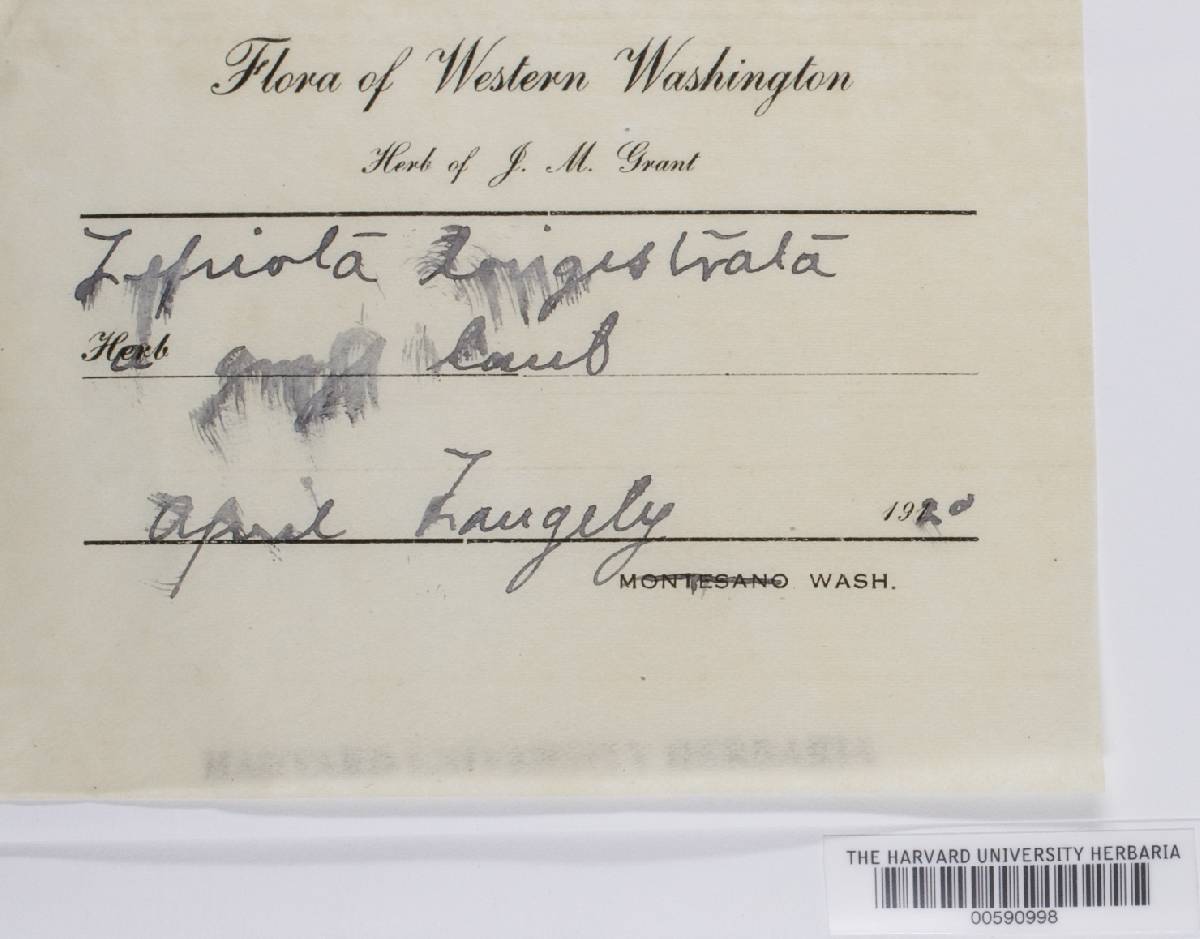 Flora of Western Washington
Herb of J. M. Grant
Lepiota
Herb
April Langely 1920
MONTESANO WASH.
HARVARD UNIVERSITY HERBARIA
THE HARVARD UNIVERSITY HERBARIA
00590998